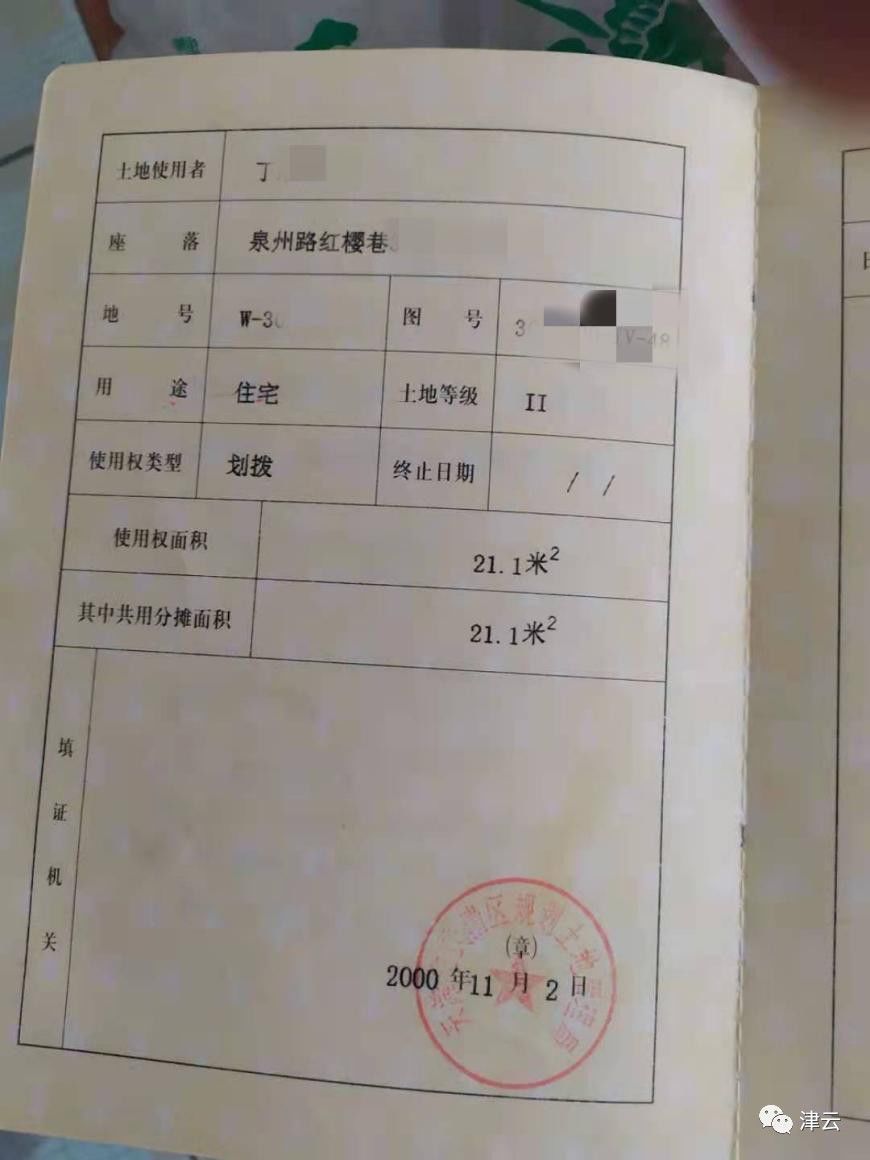 土地使用者 丁
座落 泉州路红樱巷
地号 W-30 图号 3 IV-48
用途 住宅 土地等级 II
使用权类型 划拨 终止日期 / /
使用权面积 21.1米²
其中共用分摊面积 21.1米²
填证机关
区规划土地
(章)
2000年11月2日
津云